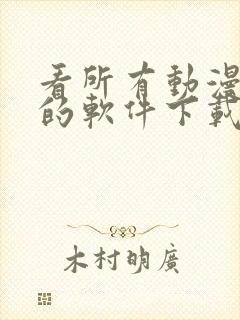 看所有動漫
的軟件下載
木村明廣